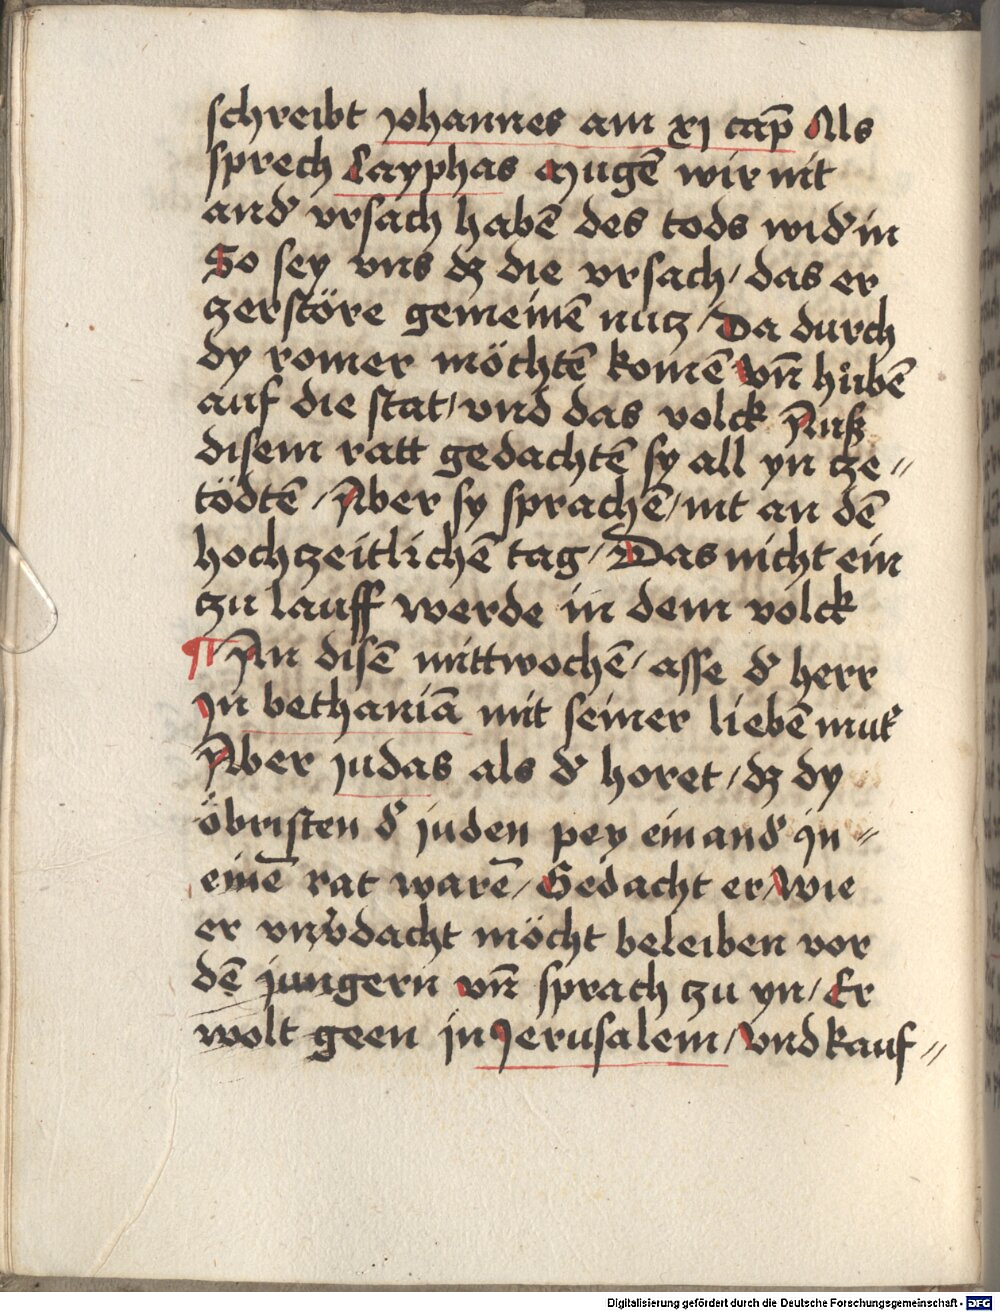 schreibt johannes am xj cap̄ Als
sprech Cayphas Mugē wir nit
and͛ vrsach habē des tods wid͛ in
So sey vns dz die vrsach / das er
zerstöre gemeinē nutz / Da durch
dy romer möchtē komē Vn̄ hůbē
auf die stat / vnd das volck Auß
disem ratt gedachtē sy all yn cze//
tödtē / Aber sy sprachē / nit an dē
hochzeitlichē tag / Das nicht ein
zu lauff werde in dem volck
¶ An disē mittwochē / asse d͛ herr
Jn bethaniā mit seiner liebē mut͛
Aber judas als d͛ horet / dz dy
öbristen d͛ juden pey einand͛ jn //
einē rat warē / Gedacht er / Wie
er vnv͛dacht möcht beleiben vor
dē jungern vn̄ sprach zu yn / Er
wolt geen in Jerusalem / Vnd kauf //
Digitalisierung gefördert durch die Deutsche Forschungsgemeinschaft - DFG